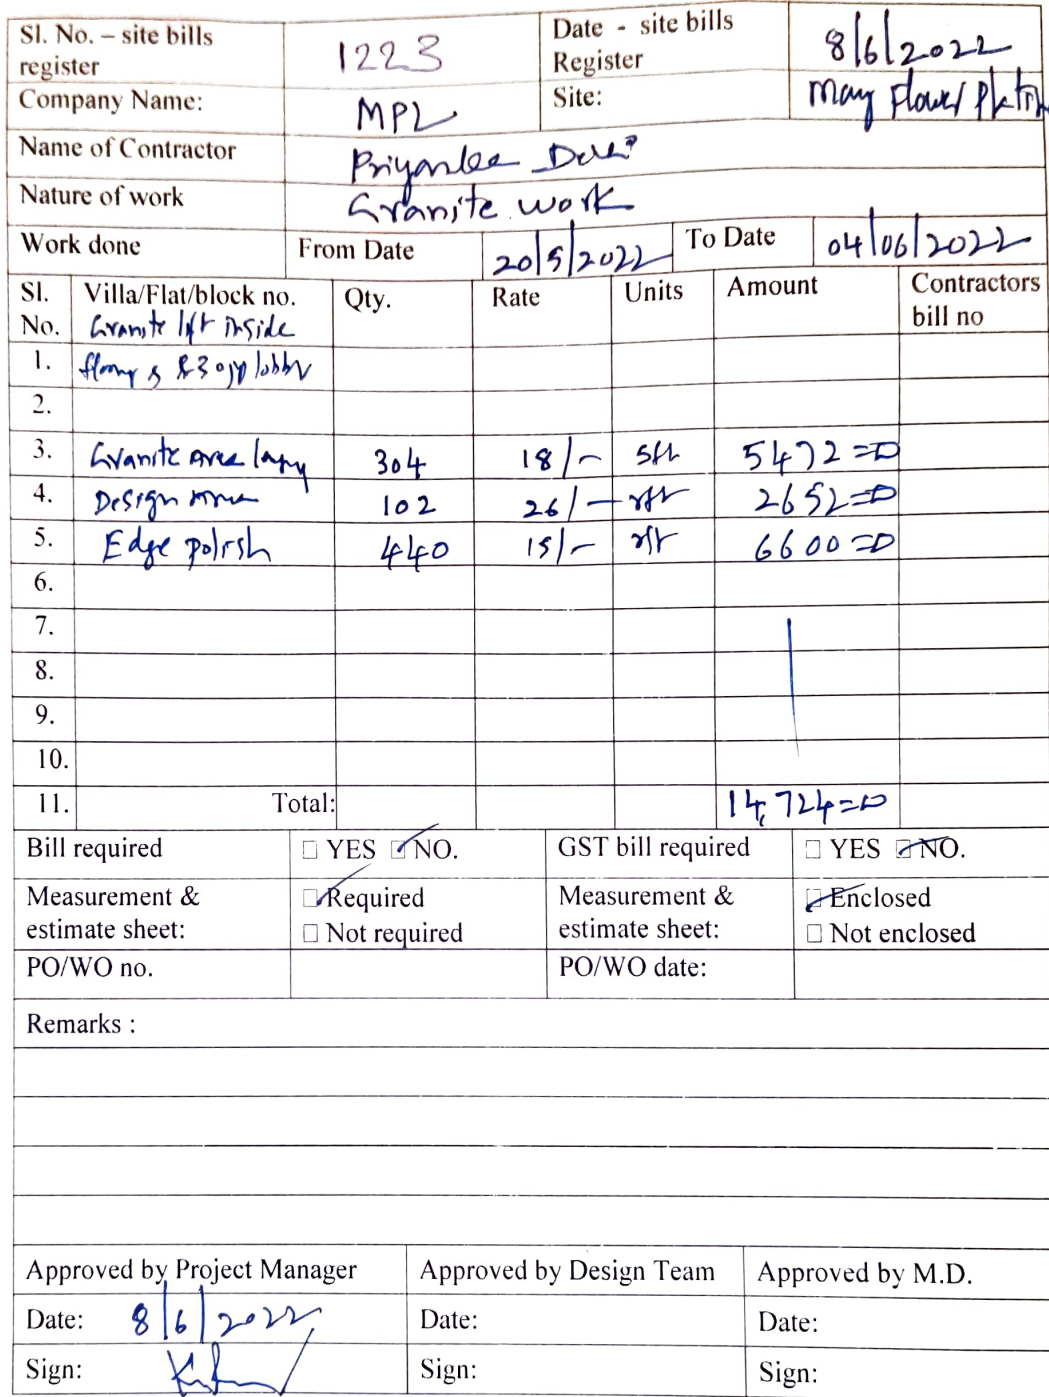 Sl. No. – site bills register 1223 Date - site bills Register 8/6/2022
Company Name: MPL Site: May Flower
Name of Contractor Priyanka Devi
Nature of work Granite work
Work done From Date 20/5/2022 To Date 04/06/2022
Sl. No. Villa/Flat/block no. Qty. Rate Units Amount Contractors bill no
Granite lift inside
1. lobby
2.
3. Granite area 304 18/- sft 5472=0
4. Design 102 26/- rft 2652=0
5. Edge polish 440 15/- rft 6600=0
6.
7.
8.
9.
10.
11. Total: 14,724=0
Bill required □ YES □ NO. GST bill required □ YES □ NO.
Measurement & estimate sheet: □ Required Measurement & estimate sheet: □ Enclosed
□ Not required □ Not enclosed
PO/WO no. PO/WO date:
Remarks :
Approved by Project Manager Approved by Design Team Approved by M.D.
Date: 8/6/2022 Date: Date:
Sign: Sign: Sign: